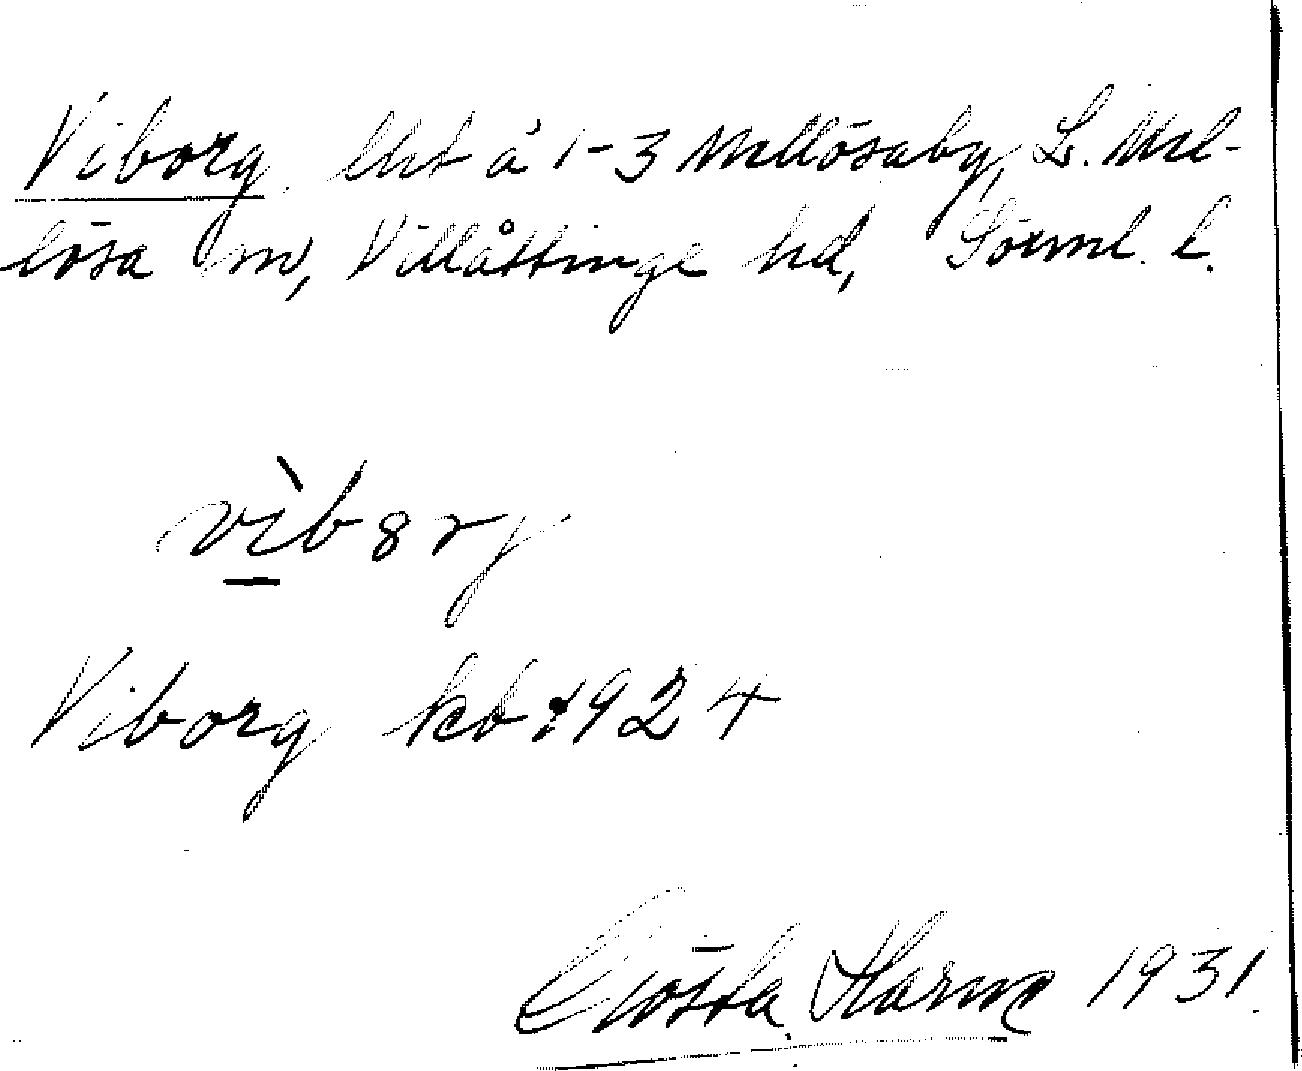 Viborg, lht å 1-3 Mellösaby, L. Mel-
lösa sn, Villåttinge hd, Sörml. l.
vìbȣrj
Viborg kb 1924
Gösta 1931.